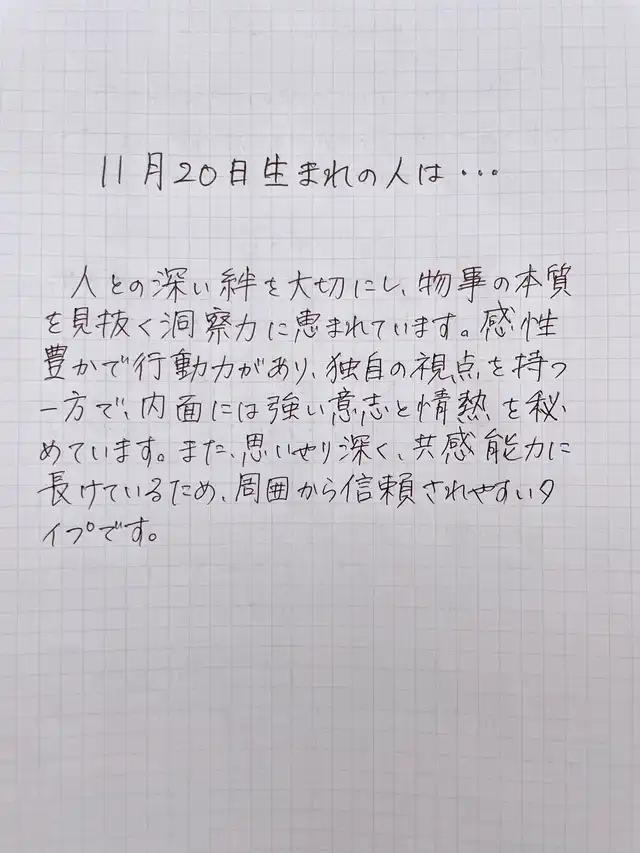 11月20日生まれの人は・・・
人との深い絆を大切にし、物事の本質
を見抜く洞察力に恵まれています。感性
豊かで行動力があり、独自の視点を持つ
一方で、内面には強い意志と情熱を秘
めています。また、思いやり深く、共感能力に
長けているため、周囲から信頼されやすいタ
イプです。